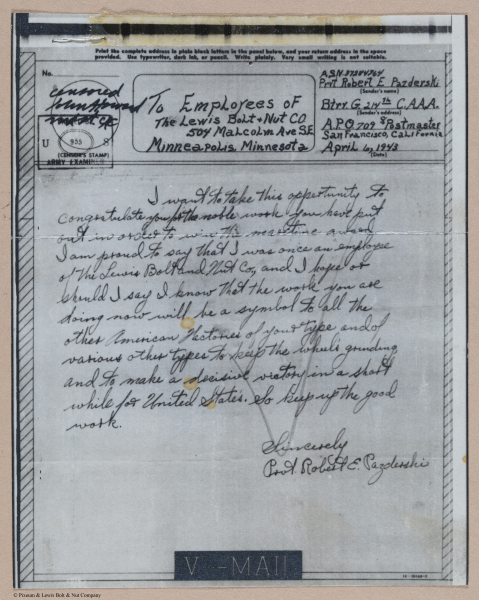 Print the complete address in plain block letters in the panel below, and your return address in the space
provided. Use typewriter, dark ink, or pencil. Write plainly. Very small writing is not suitable.
No.
censored
To Employees of
The Lewis Bolt + Nut Co
504 Malcolm Ave S.E
Minneapolis, Minnesota
U S
955
(CENSOR'S STAMP)
ARMY EXAMINER
Pvt. Robert E. Pazderski
(Sender's name)
Btry. G 214th C.A.A.A.
(Sender's address)
A.P.O. 709 % Postmaster
San Francisco, California
April 6, 1943
(Date)
I want to take this opportunity to
congratulate you for the noble work you have put
out in order to win the maritime award
I am proud to say that I was once an employee
of the Lewis Bolt and Nut Co, and I hope or
should I say I know that the work you are
doing now will be a symbol to all the
other American Factories of your type and of
various other types to keep the wheels grinding
and to make a decisive victory in a short
while for United States. So keep up the good
work.
Sincerely
Pvt. Robert E. Pazderski
V - MAIL
© Praxum & Lewis Bolt & Nut Company